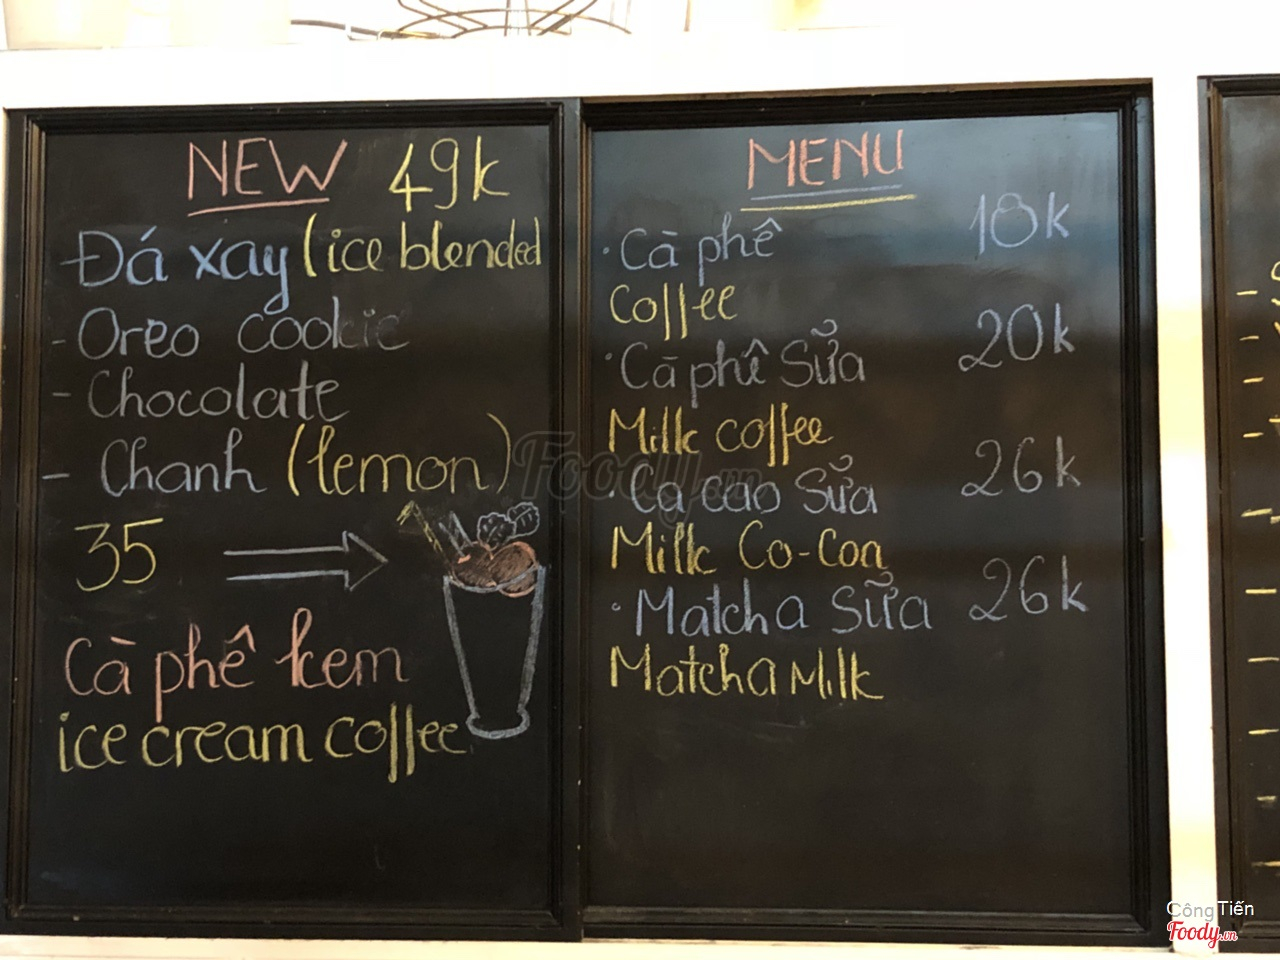 NEW 49k
Đá xay (ice blended
- Oreo cookie
- Chocolate
- Chanh (lemon)
35
Cà phê kem
ice cream coffee
MENU
· Cà phê 18k
Coffee
· Cà phê Sữa 20k
Milk coffee
· Ca cao Sữa 26k
Milk Co-Coa
· Matcha Sữa 26k
Matcha Milk
Foody.vn
Công Tiến
Foody.vn